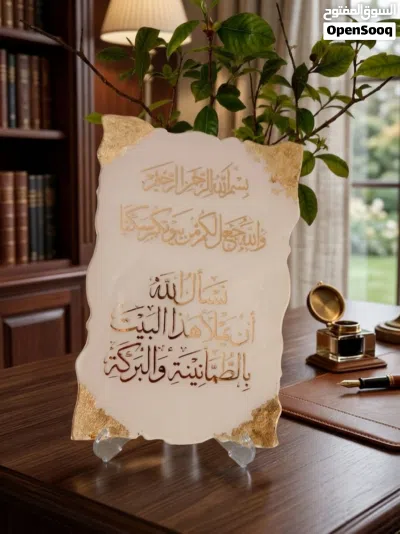 السوق المفتوح
OpenSooq
بسم الله الرحمن الرحيم
والله جعل لكم من بيوتكم سكنا
نسأل الله
أن يملأ هذا البيت
بالطمأنينة والبركة